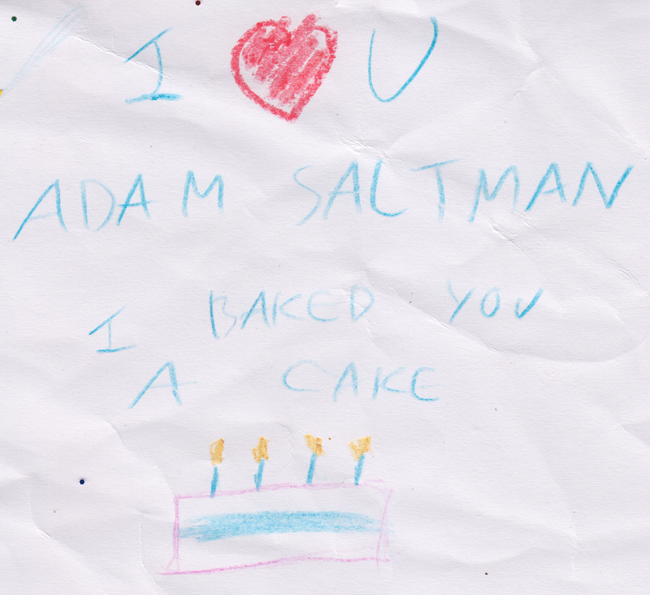 I ❤ U
ADAM SALTMAN
I BAKED YOU
A CAKE